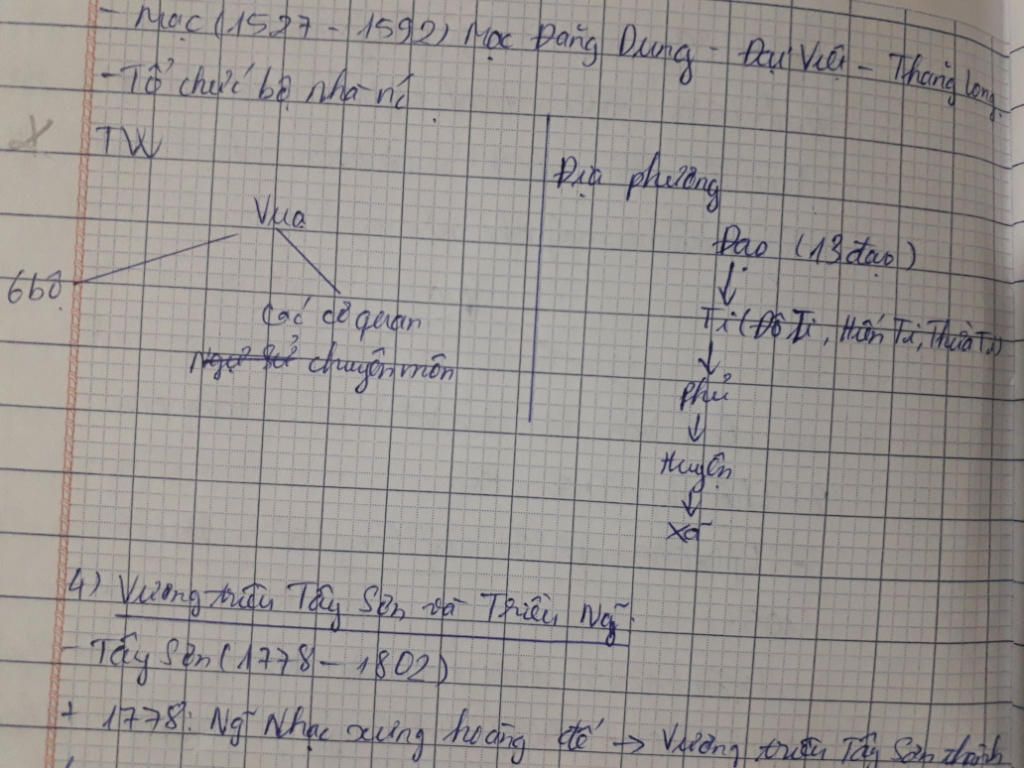 - Mạc (1527 - 1592) Mạc Đăng Dung - Đại Việt - Thăng Long.
- Tổ chức bộ nhà nc
TW
Địa phương
Vua
Đạo (13 đạo)
6 bộ
Các cơ quan
chuyên môn
Ti (Đô Ti, Hiến Ti, Thừa Ti)
↓
Phủ
↓
Huyện
↓
Xã
4) Vương triều Tây Sơn và Triều Ng~
- Tây Sơn (1778 - 1802)
+ 1778: Ng~ Nhạc xưng hoàng đế → Vương triều Tây Sơn thành